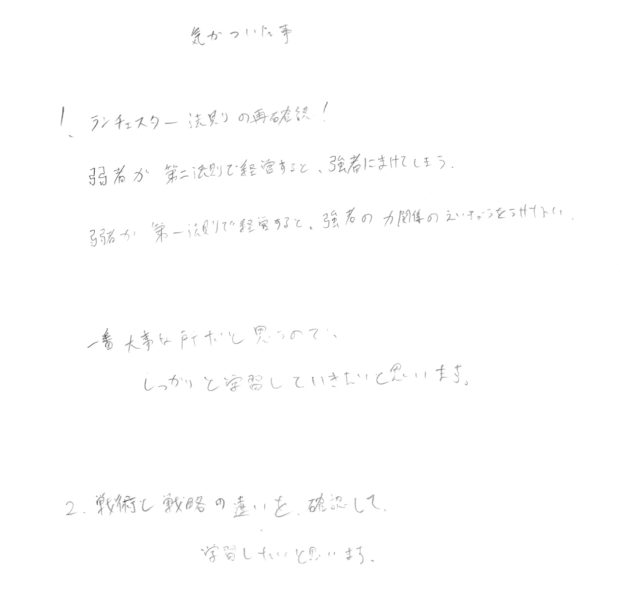 気がついた事
1、ランチェスター法則の再確認!
弱者が第二法則で経営すると、強者にまけてしまう.
弱者が第一法則で経営すると、強者の力関係のえいきょうをうけない.
一番大事な所だと思うので、
しっかりと学習していきたいと思います。
2、戦術と戦略の違いを、確認して、
学習したいと思います。